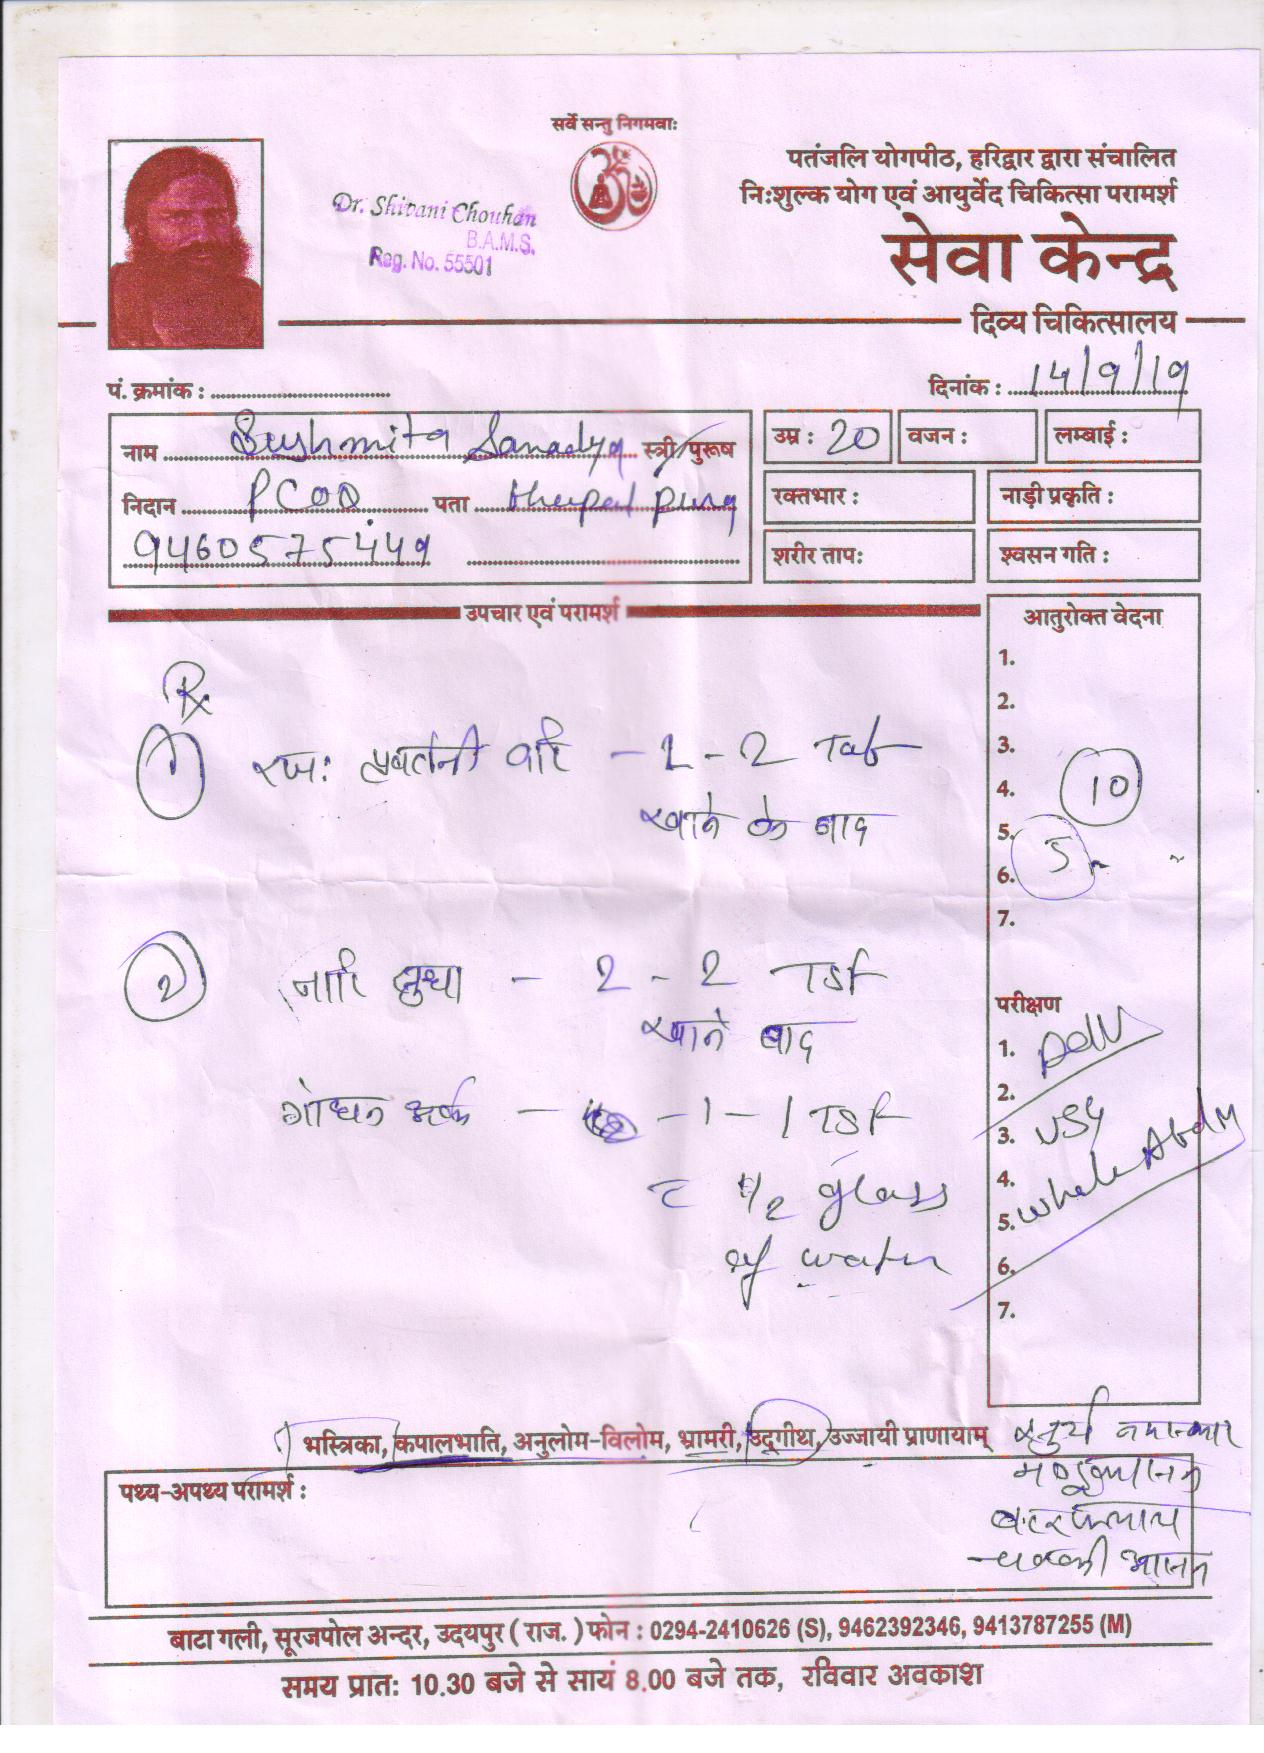 सर्वे सन्तु निरामयाः
पतंजलि योगपीठ, हरिद्वार द्वारा संचालित
निःशुल्क योग एवं आयुर्वेद चिकित्सा परामर्श
सेवा केन्द्र
दिव्य चिकित्सालय
Dr. Shivani Chouhan
B.A.M.S.
Reg. No. 55501
पं. क्रमांक :
दिनांक : 14/9/19
नाम Sushmita Sanadya स्त्री/पुरूष
उम्र : 20 वजन : लम्बाई :
निदान PCOD पता Bhupalpura
रक्तभार : नाड़ी प्रकृति :
9460575449
शरीर ताप: श्वसन गति :
उपचार एवं परामर्श
Rx
1 रजः प्रवर्तनी वटि - 2 - 2 Tab
खाने के बाद
2 नारि सुधा - 2 - 2 TSF
खाने बाद
गोधन अर्क - 1 - 1 TSF
1/2 glass
of water
आतुरोक्त वेदना
1.
2.
3.
4. 10
5. 5
6.
7.
परीक्षण
1.
2.
3. USG
4. Whole Abdm
5.
6.
7.
भस्त्रिका, कपालभाति, अनुलोम-विलोम, भ्रामरी, उद्‌गीथ, उज्जायी प्राणायाम्
सूर्य नमस्कार
मण्डूकासन
चक्की आसन
पथ्य-अपथ्य परामर्श :
बाटा गली, सूरजपोल अन्दर, उदयपुर ( राज. ) फोन : 0294-2410626 (S), 9462392346, 9413787255 (M)
समय प्रातः 10.30 बजे से सायं 8.00 बजे तक, रविवार अवकाश